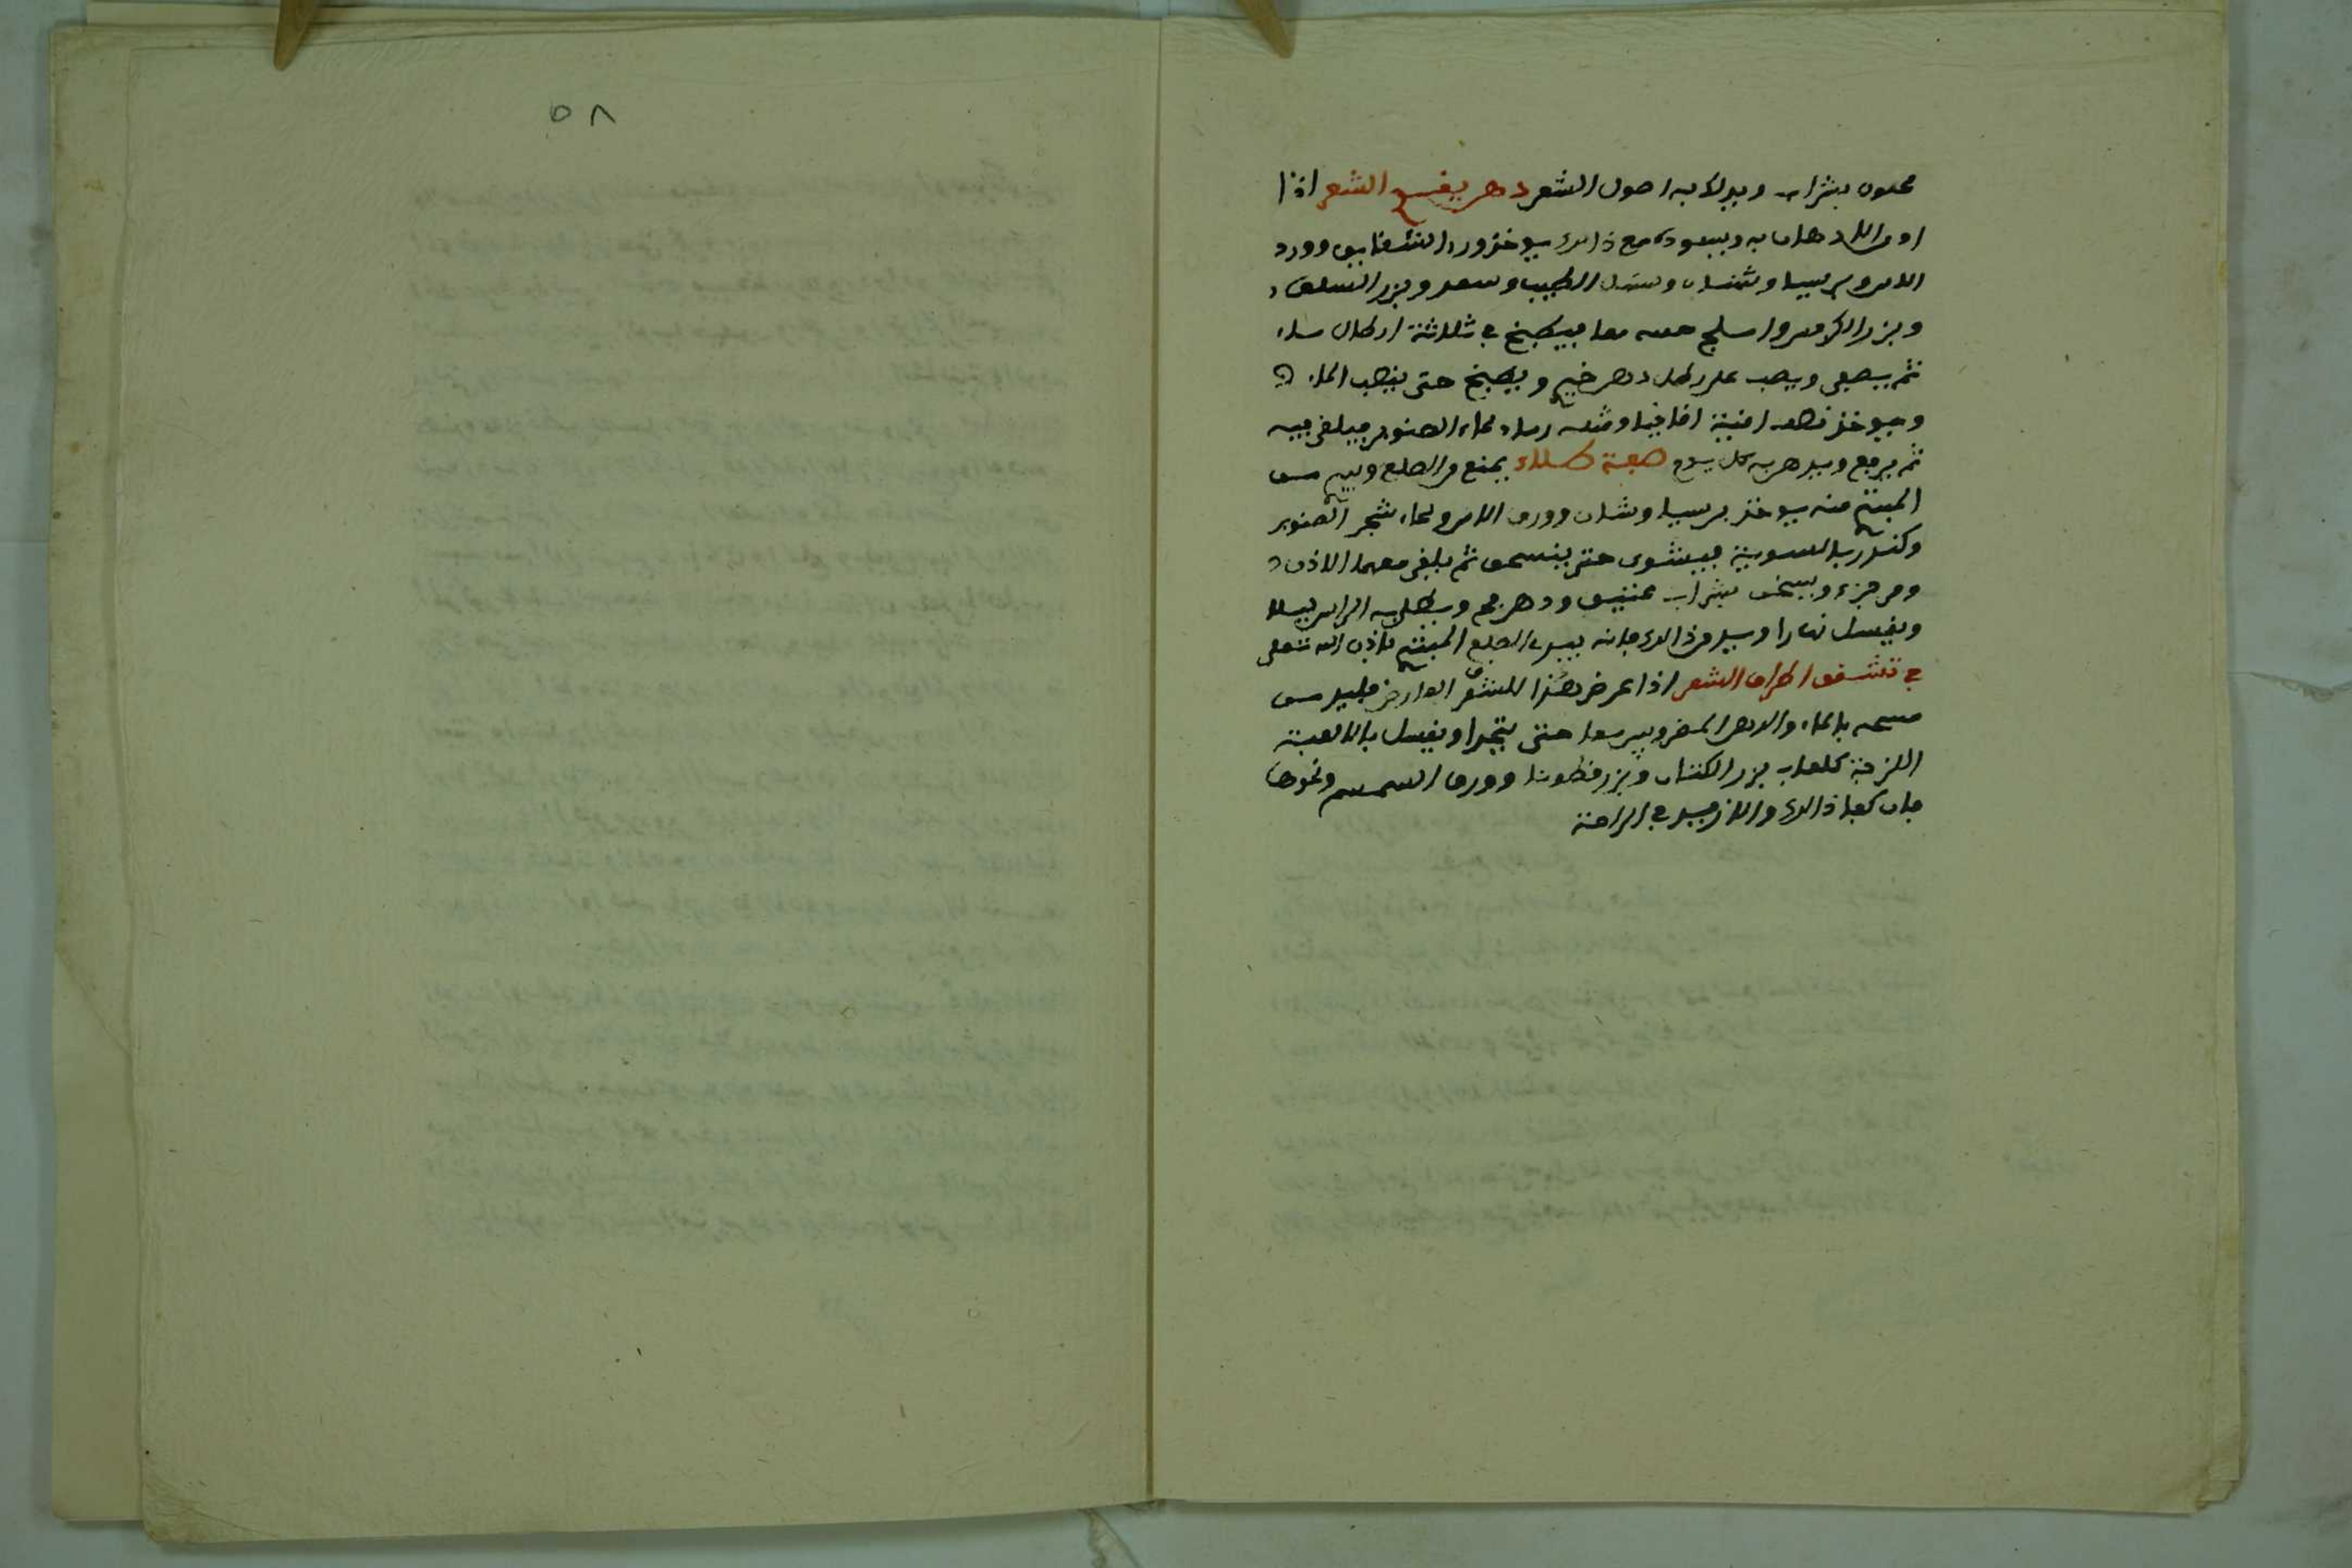 ٥٨
معجون بشراب ويدلك به اصول الشعر دهن يقسح الشعر اذا
ادمن الادهان به ويسوده مع ذالك يوخذ ورد الشقايق وورد
الاس وبرسيا وشان وسنبل الطيب وسعد وبزر السلق
وبزر الكرفس واملج معا فيطبخ في ثلاثة ارطال ماء
ثم يصفى ويصب على رطل دهن خيري ويطبخ حتى يذهب الماء
ويوخذ اوقية اقاقيا ومثله رماد لحاء الصنوبر فيلقى فيه
ثم يرفع ويدهن به كل يوم صفة طلاء يمنع من الصلع
المبتدى منه يوخذ برسيا وشان وورق الاس ولحاء شجر الصنوبر
وكندر بالسوية فيشوى حتى ينسحق ثم يلقى معها اللاذن
ومر جزء ويسخن بشراب عتيق ودهن ويطلى به الراس ليلا
ويغسل نهارا ويدمن ذالك فانه يبرى الصلع المبتدى باذن الله تعلى
في تشقق اطراف الشعر اذا عرض هذا للشعر العارض فليدمن
مسحه بالماء والدهن المضروبين معا حتى يتحدا ويغسل بالالعبة
اللزجة كلعاب بزر الكتان وبزر قطونا وورق السمسم ونحوها
فان كفا ذالك والا زيد في الراحة